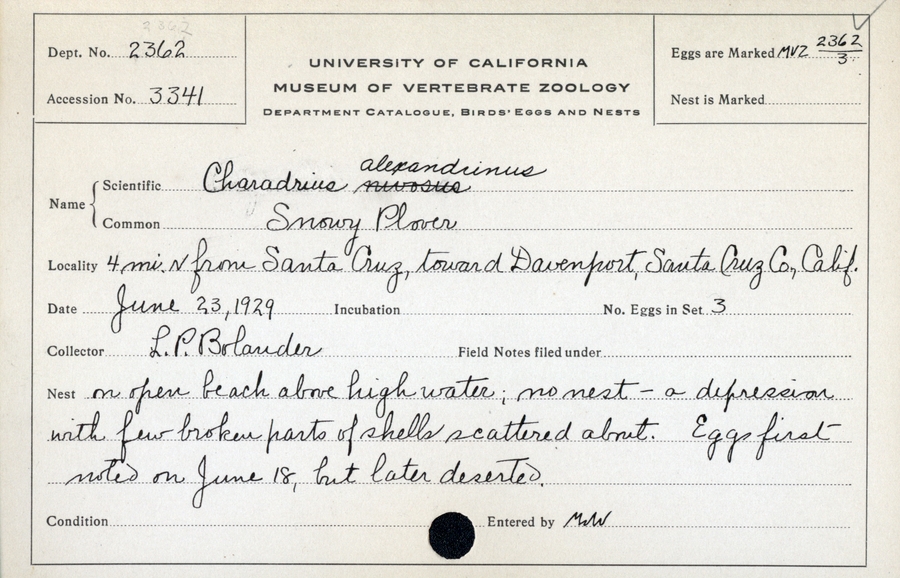 2362
Dept. No. 2362
Accession No. 3341
UNIVERSITY OF CALIFORNIA
MUSEUM OF VERTEBRATE ZOOLOGY
DEPARTMENT CATALOGUE, BIRDS' EGGS AND NESTS
Eggs are Marked MVZ 2362/3
Nest is Marked
alexandrinus
Name Scientific Charadrius nivosus
Common Snowy Plover
Locality 4 mi. N from Santa Cruz, toward Davenport, Santa Cruz Co., Calif.
Date June 23, 1929 Incubation No. Eggs in Set 3
Collector L. P. Bolander Field Notes filed under
Nest on open beach above high water; no nest - a depression
with few broken parts of shells scattered about. Eggs first
noted on June 18, but later deserted.
Condition Entered by MW